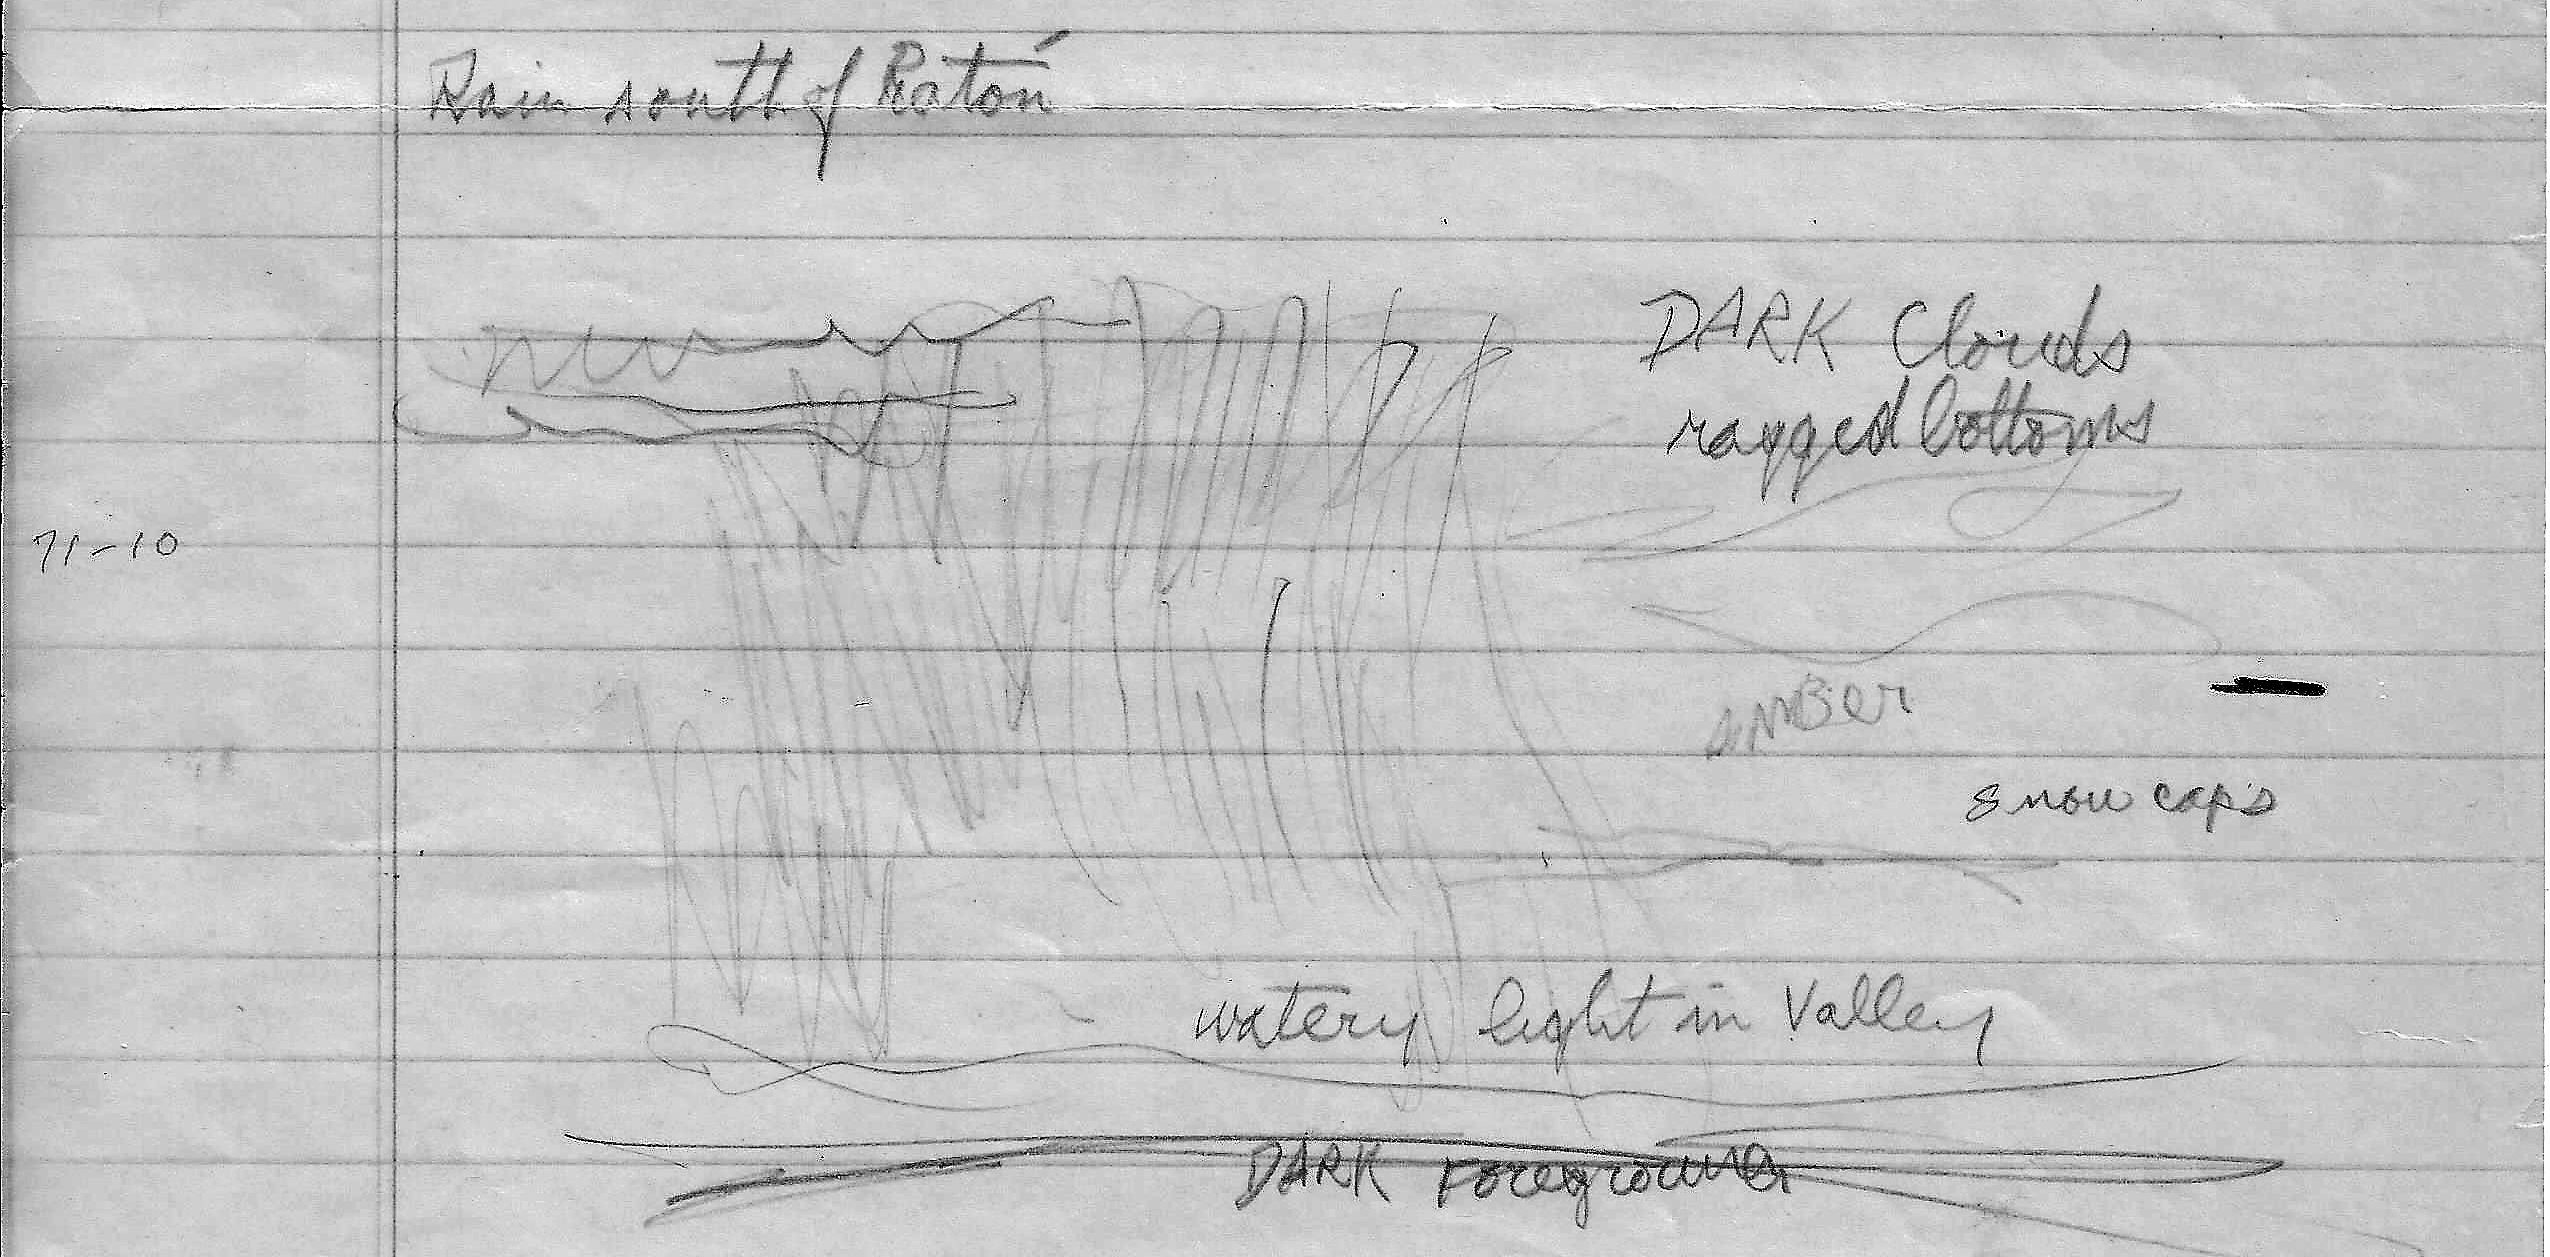 Rain south of Ratón
DARK Clouds
ragged bottoms
71-10
amber
snow caps
watery light in Valley
DARK Foreground